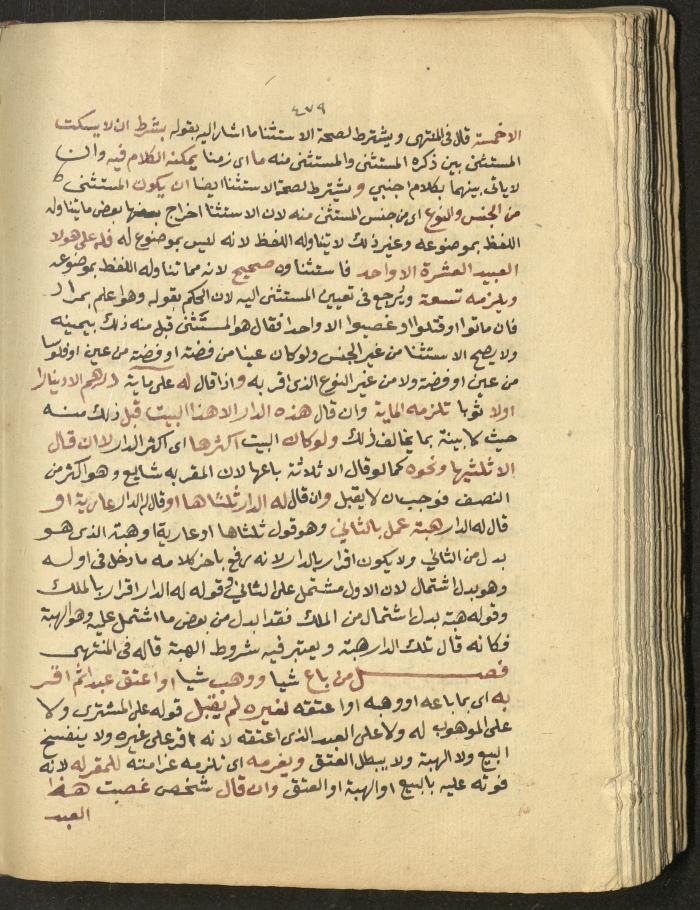 ٤٧٩
الا خمسة قال في المنتهى ويشترط لصحة الاستثنا ما اشار اليه بقوله بشرط ان لا يسكت
المستثنى بين ذكره المستثنى والمستثنى منه ما اى زمنا يمكنه الكلام فيه وان
لا ياتى بينهما بكلام اجنبي ويشترط لصحة الاستثنا ايضا ان يكون المستثنى
من الجنس والنوع اى من جنس المستثنى منه لان الاستثنا اخراج بعض ما يتناوله
اللفظ بموضوعه وغير ذلك لا يتناوله اللفظ لانه ليس بموضوع له فله على هولا
العبيد العشرة الا واحد فاستثناوه صحيح لانه مما تناوله اللفظ بموضوعه
ويلزمه تسعة ويرجع في تعيين المستثنى اليه لان الحكم بقوله وهو اعلم بمراده
فان ماتوا او قتلوا او غصبوا الا واحدا فقال هو المستثنى قبل منه ذلك بيمينه
ولا يصح الاستثنا من غير الجنس ولو كان عينا من فضة او فضة من عين او فلوسا
من عين او فضة ولا من غير النوع الذى اقر به واذا قال له على ماية درهم الا دينارا
او لا ثوبا تلزمه الماية وان قال هذه الدار الا هذا البيت قبل ذلك منه
حيث لا بينة بما يخالف ذلك ولو كان البيت اكثرها اى اكثر الدار لا ان قال
الا ثلثيها ونحوه كما لو قال الا ثلاثة باعها لان المقر به شايع وهو اكثر من
النصف فوجب ان لا يقبل وان قال له الدار ثلثاها او قال له الدار عارية او
قال له الدار هبة عمل بالثاني وهو قول ثلثاها او عارية او هبة الذى هو
بدل من الثاني ولا يكون اقرار بالدار لانه رفع باخر كلامه ما دخل في اوله
وهو بدل اشتمال لان الاول مشتمل على الثاني وقوله له الدار اقرار بالملك
وقوله هبة بدل اشتمال من الملك فقد ابدل من بعض ما اشتمل عليه وهو الهبة
فكانه قال تلك الدار هبة ويعتبر فيه شروط الهبة قاله في المنتهى
فصل من باع شيا ووهب شيا او اعتق عبدا ثم اقر
به اى بما باعه او وهبه او اعتقه لغيره لم يقبل قوله على المشترى ولا
على الموهوب له ولا على العبد الذى اعتقه لانه اقر على غيره ولا ينفسخ
البيع ولا الهبة ولا يبطل العتق ويغرمه اى تلزمه غرامته للمقر له لانه
فوته عليه بالبيع او الهبة او العتق وان قال شخص غصبت هذا
العبد